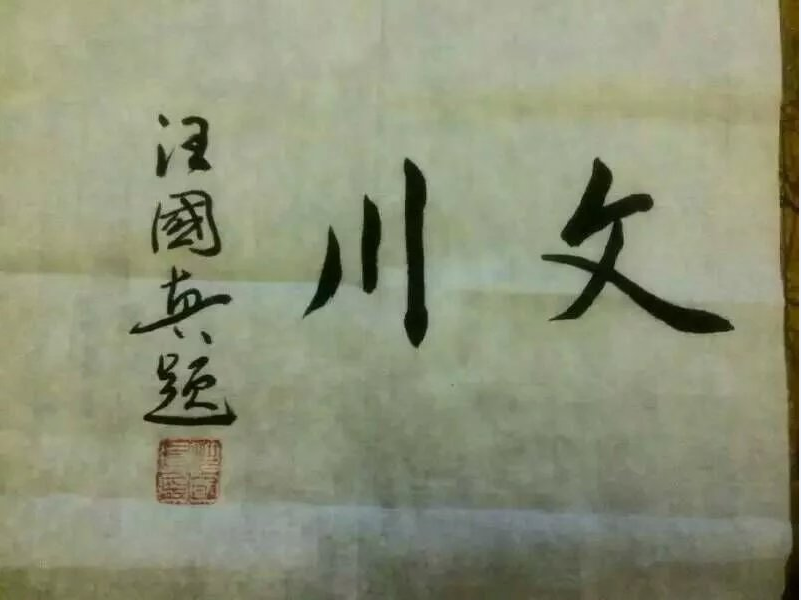 文川
汪國真題